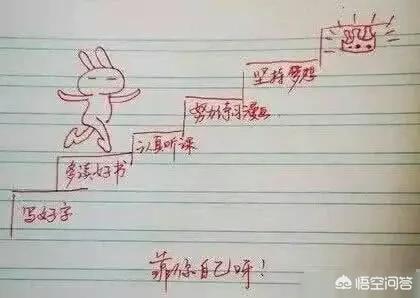 坚持梦想
努力练习漫画
认真听课
多读好书
写好字
靠你自己呀！
悟空问答